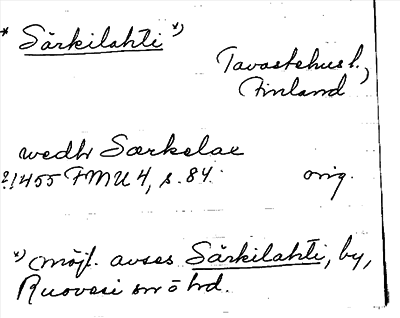 * Särkilahti *)
Tavastehus l.,
Finland
wedh Særkelax
?1455 FMU 4, s. 84. orig.
*) Möjl. avses Särkilahti, by,
Ruovesi sn o hd.